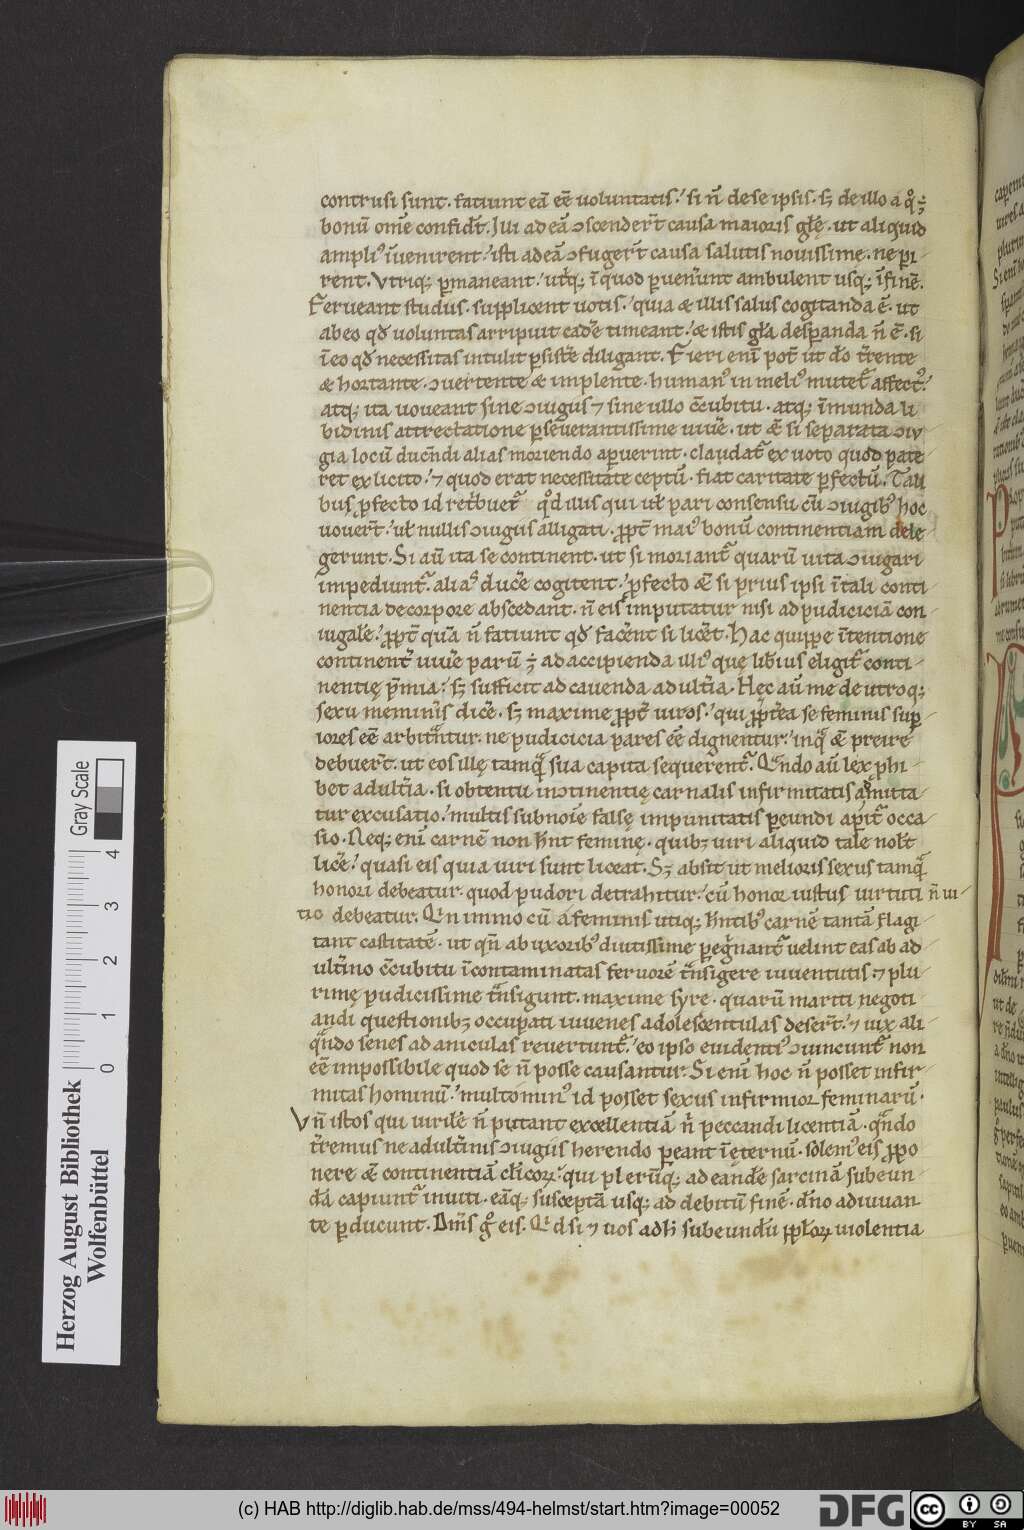 contrusi sunt. fatiunt eā eē uoluntatis. si n̄ de se ipsis. sꝫ de illo a qͦ ē
bonū om̄e confidt̄. Jui ad eā ↄscendert̄ causa maioris glę̄. ut aliquid
ampliꝰ īuenirent. isti ad eā ↄfugert̄ causa salutis nouissimę. ne pͥ
rent. Vtriqꝫ ꝑmaneant. utͥqꝫ; ī quod ꝑuener̄unt ambulent usqꝫ ī finē.
Ferueant studus. supplicent uotis. quia & illis salus cogitanda ē. ut
abeo qd̄ uoluntas arripuit cade͛ timeant. & istis gl̄a desꝑanda n̄ ē. si
ī eo qd̄ necessitas intulit ꝑsiste͛ diligant. Fieri enī pot̄ ut dō tr̄rente
& hortante. ↄuertente & implente. humanꝰ in meliꝰ mutet᷑ affectꝰ.
atqꝫ ita uoueant sine ↄiugiis ⁊ sine ullo ↄ̄cubitu. atqꝫ īmunda li
bidinis attrectatione ꝑseuerantissime uiue͛. ut & si separata ↄiu
gia locū ducn̄di alias moriendo aꝑuerint. claudat᷑ ex uoto quod pate
ret ex licito. ⁊ quod erat necessitate ceptū. fiat caritate ꝑfectū. Tali
bus ꝓfecto id ret̄buet᷑ qd̄ illis qui ul̄ pari consensu cū ↄiugibꝰ hoc
uouert̄. ul̄ nullis ↄiugiis alligati. ꝓpt̄ maiꝰ bonū continentiam dele
gerunt. Si aū ita se continent. ut si moriant᷑ quarū uita ↄiugari
impediunt᷑. alias duce͛ cogitent. ꝓfecto & si prius ipsi ī tali conti
nentia de corpore abscedant. n̄ eis imputatur nisi ad pudiciciā con
iugalē. ꝓpt̄ quā n̄ fatiunt qd̄ face͛nt si lice͛t. Hac quippe ītentione
continent᷑ uiue͛ parū ē; ad accipienda illiꝰ quę libiꝰ eligit᷑ conti
nentię p̄mia. sꝫ sufficit ad cauenda adult͛ia. Hęc aū me de utroqꝫ
sexu memin͛is dice͛. sꝫ maxime ꝓpt̄ uiros. qui ꝓpt͛ea se feminis suꝑ
iores eē arbitrāntur. ne pudicicia pares eē dignentur. in qͣ & preire
debuert̄. ut eos illę tamqͣ sua capita sequerent᷑. Qͣndo aū lex ꝓhi
bet adult͛ia. si obtentu inↄtinentię carnalis infirmitatis admitta
tur excusatio. multis sub noīe falsę impunitatis ꝑeundi aꝑit᷑ occa
sio. Neqꝫ enī carnē non hn̄t feminę. quibꝫ uiri aliquid tale nolt̄
lice͛. quasi eis quia uiri sunt liceat. Sꝫ absit ut melioris sexus tamqͣ
honori debeatur. quod pudori detrahitur. cū honor iustus uirtuti n̄ ui
tio debeatur. Qn immo cū a feminis utiqꝫ hn̄tibꝰ carnē tantā flagi
tant castitatē. ut qn̄ ab uxoribꝰ diutissime ꝑegnant᷑ uelint eas ab ad
ult͛ino ↄ̄cubitu īcontaminatas feruorē trͣnsigere iuuentutis ⁊ plu
rimę pudicissime trͣnsigunt. maxime syrę. quarū mariti negoti
andi questionibꝫ occupati iuuenes adolescentulas desert̄. ⁊ uix ali
qͣndo senes ad aniculas reuertunt᷑. eo ipso euidentiꝰ ↄuincunt᷑ non
eē impossibile quod se n̄ posse causantur. Si enī hoc n̄ posset infir
mitas hominū. multo minꝰ id posset sexus infirmior feminarū.
Vn̄ istos qui uirilē n̄ putant excellentiā n͛ peccandi licentiā. qͣndo
t͛remus ne adult͛inis ↄiugiis herendo ꝑeant ī ęternū. solemꝰ eis ꝓpo
nere & continentiā cl͛icoꝝ. qui pler͛ūqꝫ ad eandē sarcinā subeun
dā capiunt᷑ inuiti. eāqꝫ susceptā usqꝫ ad debitū finē. dn̄o adiuuan
te ꝑducunt. Dim͛s gͦ eis. Qd si ⁊ uos ad h̄ subeundū ppl̄oꝝ uiolentia
Herzog August Bibliothek
Wolfenbüttel
Gray Scale
0 1 2 3 4
(c) HAB http://diglib.hab.de/mss/494-helmst/start.htm?image=00052
DFG
cc BY SA